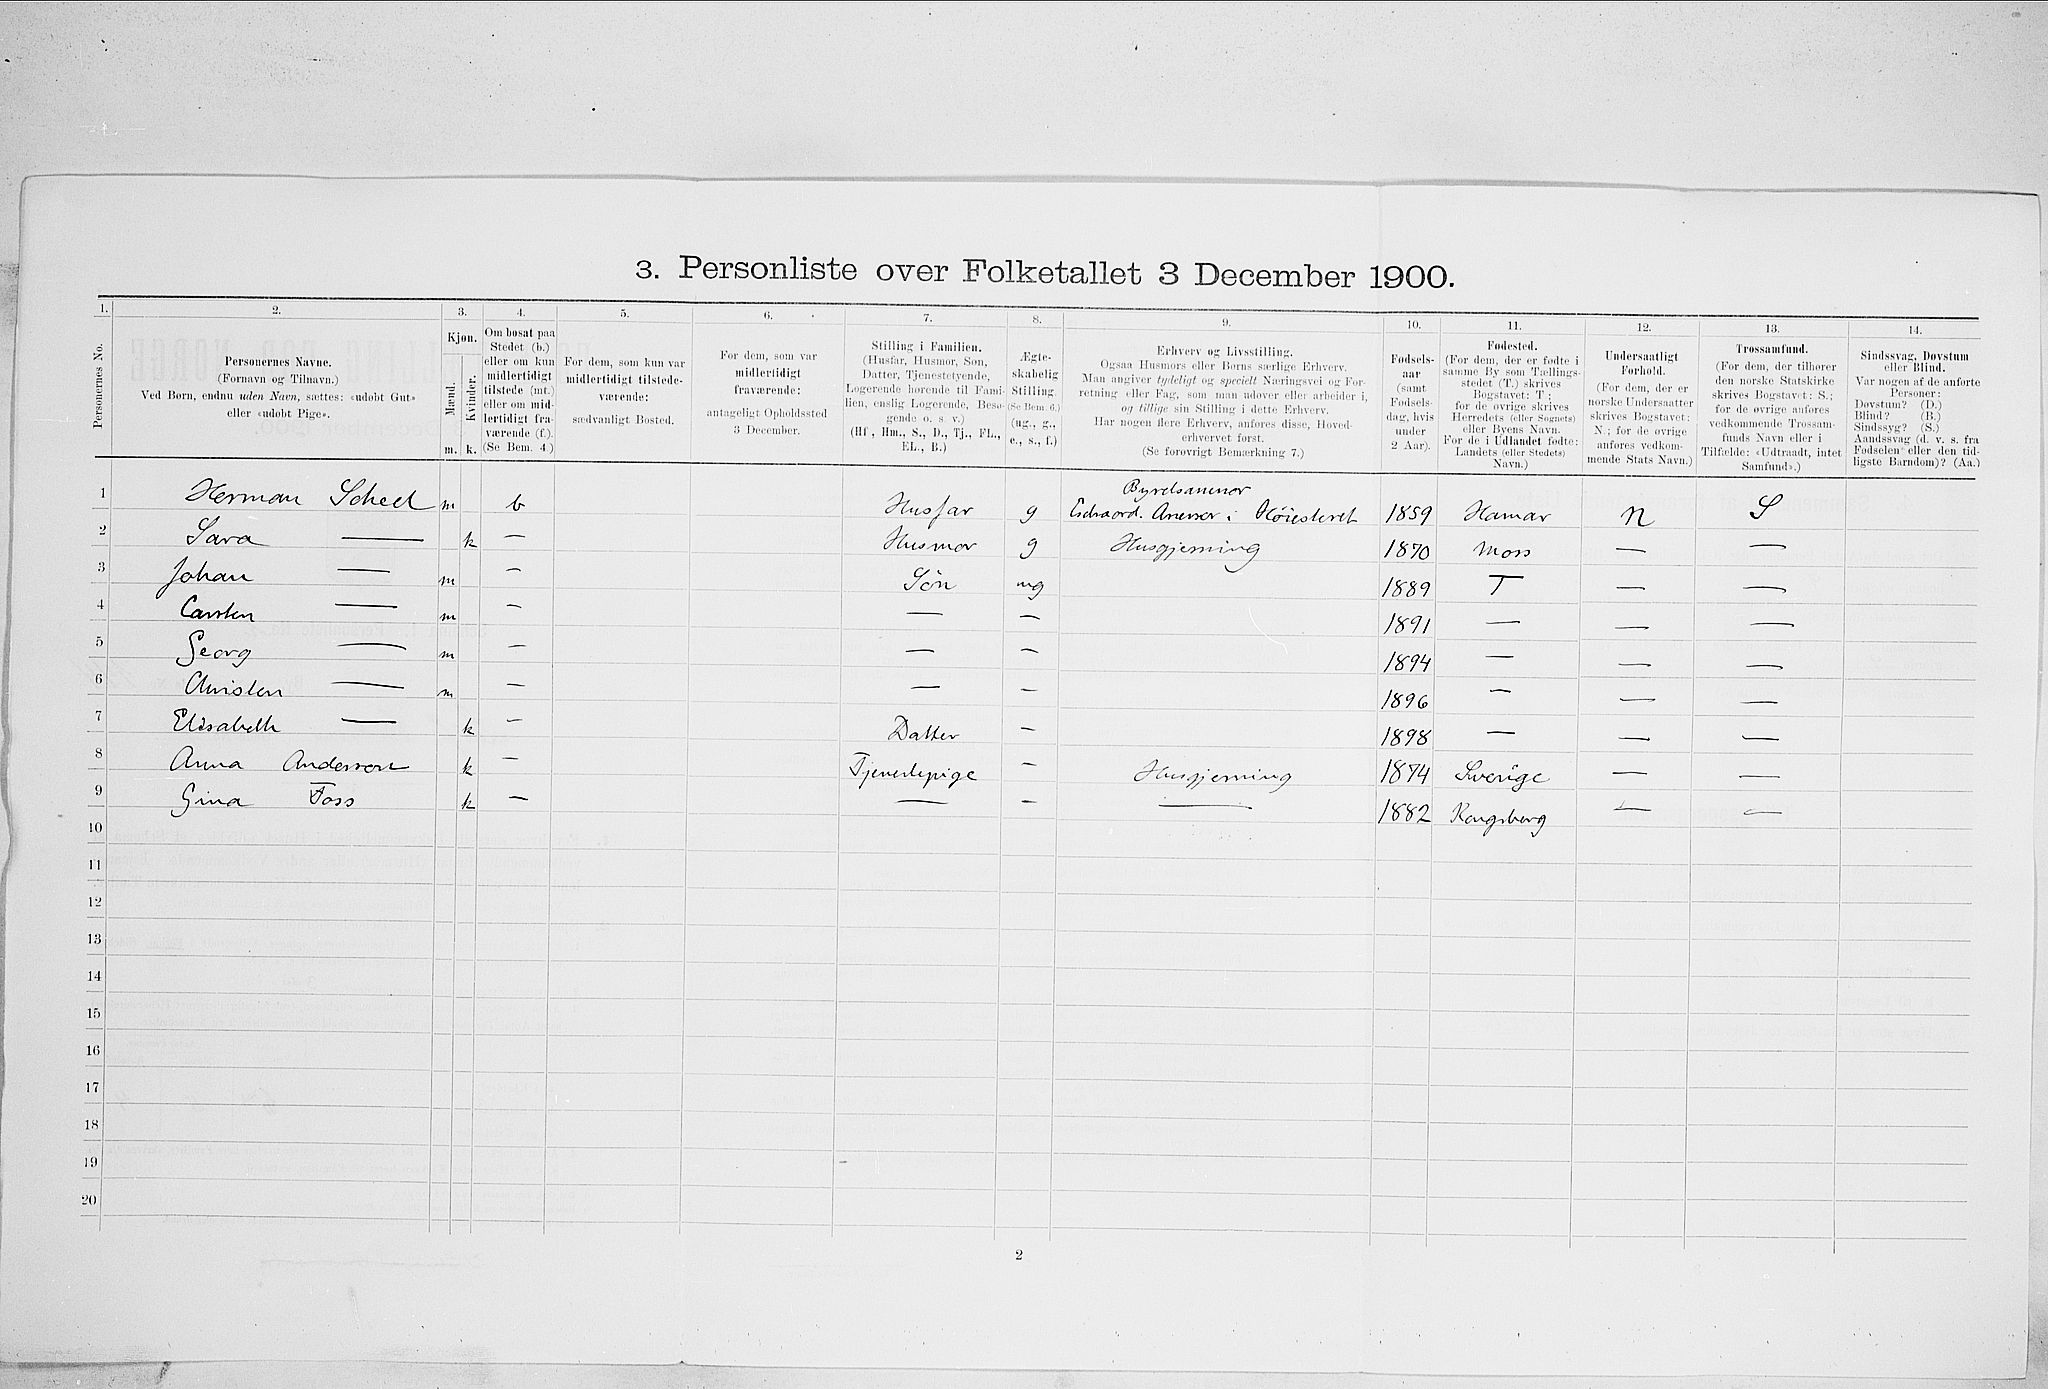 3. Personliste over Folketallet 3 December 1900.
1. 2. 3. 4. 5. 6. 7. 8. 9. 10. 11. 12. 13. 14.
Personernes No.
Personernes Navne.
(Fornavn og Tilnavn.)
Ved Børn, endnu uden Navn, sættes: «udøbt Gut»
eller «udøbt Pige».
Kjøn.
Mænd.
Kvinder.
m. k.
Om bosat paa
Stedet (b.)
eller om kun
midlertidigt
tilstede (mt.)
eller om mid-
lertidigt fra-
værende (f.).
(Se Bem. 4.)
For dem, som kun var
midlertidigt tilstede-
værende:
sædvanligt Bosted.
For dem, som var
midlertidigt
fraværende:
antageligt Opholdssted
3 December.
Stilling i Familien.
(Husfar, Husmor, Søn,
Datter, Tjenestetyende,
Logerende hørende til Fami-
lien, enslig Logerende, Besø-
gende o. s. v.)
(Hf., Hm., S., D., Tj., FL.,
EL., B.)
Ægte-
skabelig
Stilling.
(Se Bem. 6.)
(ug., g.,
e., s., f.)
Erhverv og Livsstilling.
Ogsaa Husmors eller Børns særlige Erhverv.
Man angiver tydeligt og specielt Næringsvei og For-
retning eller Fag, som man udøver eller arbeider i,
og tillige sin Stilling i dette Erhverv.
Har nogen flere Erhverv, anføres disse, Hoved-
erhvervet først.
(Se forøvrigt Bemærkning 7.)
Fødsels-
aar
(samt
Fødsels-
dag, hvis
under
2 Aar).
Fødested.
(For dem, der er fødte i
samme By som Tællings-
stedet (T.) skrives
Bogstavet: T;
for de øvrige skrives
Herredets (eller Sognets)
eller Byens Navn.
For de i Udlandet fødte:
Landets (eller Stedets)
Navn.)
Undersaatligt
Forhold.
(For dem, der er
norske Undersaatter
skrives Bogstavet:
N.; for de øvrige
anføres vedkom-
mende Stats Navn.)
Trossamfund.
(For dem, der tilhører
den norske Statskirke
skrives Bogstavet: S.;
for de øvrige anføres
vedkommende Trossam-
funds Navn eller i
Tilfælde: «Udtraadt, intet
Samfund».)
Sindssvag, Døvstum
eller Blind.
Var nogen af de anførte
Personer:
Døvstum? (D.)
Blind? (B.)
Sindssyg? (S.)
Aandssvag (d. v. s. fra
Fødselen eller den tid-
ligste Barndom)? (Aa.)
1 Herman Scheel m b Husfar g 1859 Hamar N S
2 Sara — k — Husmor g Husgjerning 1870 Moss — —
3 Johan — m — Søn ug 1889 T — —
4 Carsten — m — — — 1891 — — —
5 Georg — m — — — 1894 — — —
6 Christen — m — — — 1896 — — —
7 Elisabeth — k — Datter — 1898 — — —
8 Anna Anderson k — Tjenestepige — Husgjerning 1874 Sverige — —
9 Gina Foss k — — — — 1882 Kongsberg — —
10
11
12
13
14
15
16
17
18
19
20
2